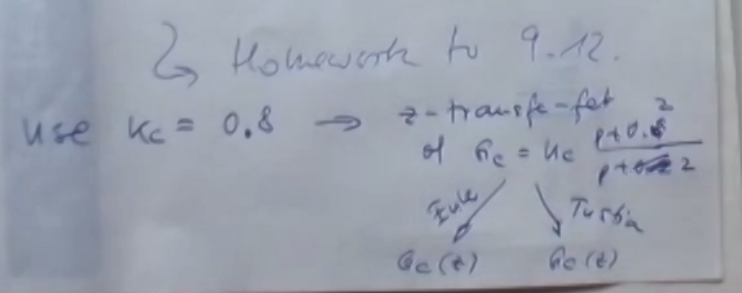 ↳ Homework to 9.12.
use Kc = 0.8 → z-transfe-fct
of Gc = Kc p+0.2 / p+2
Euler Tustin
Gc(z) Gc(z)